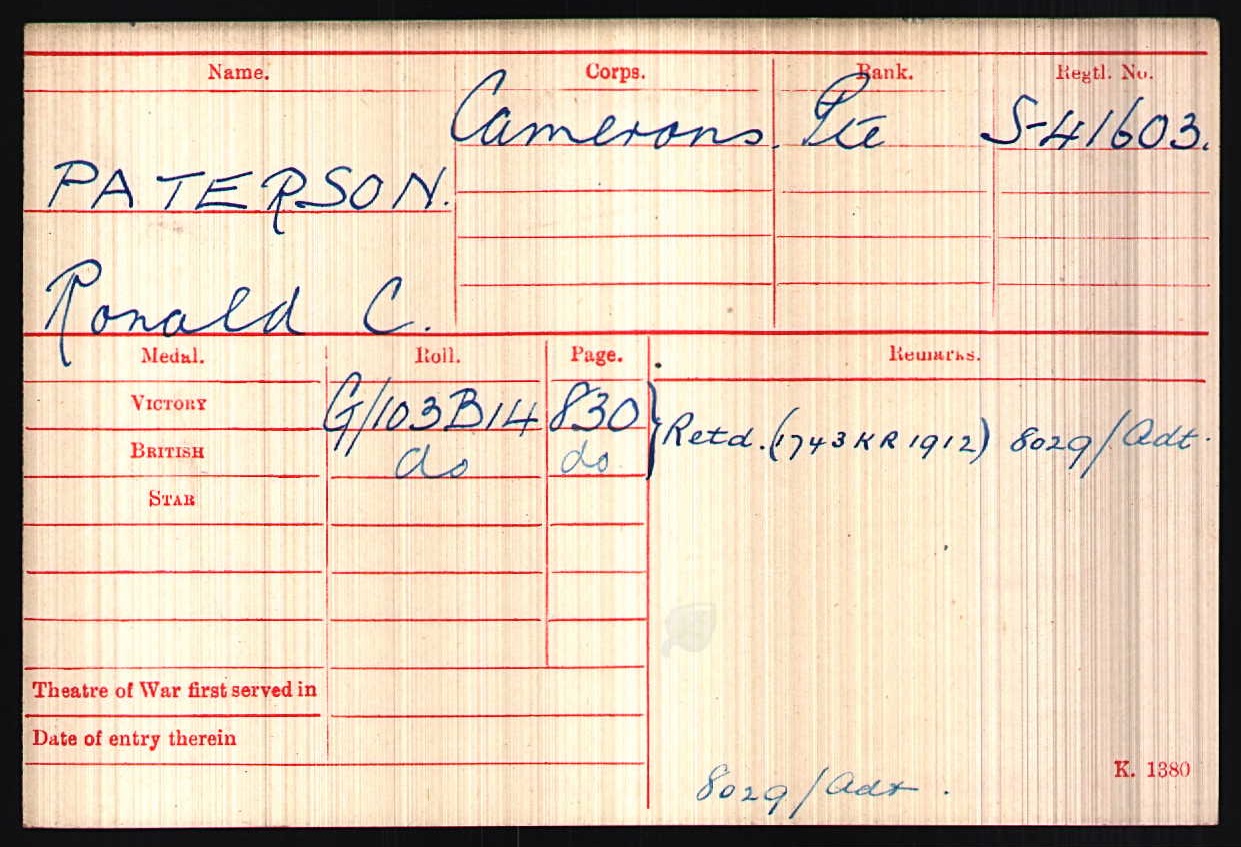 Name. Corps. Rank. Regtl. No.
Camerons. Pte S-41603.
PATERSON.
Ronald C.
Medal. Roll. Page. Remarks.
VICTORY G/103B14 830
BRITISH do do } Retd. (1743 KR 1912) 8029/Adt.
STAR
Theatre of War first served in
Date of entry therein
K. 1380
8029/Adt.